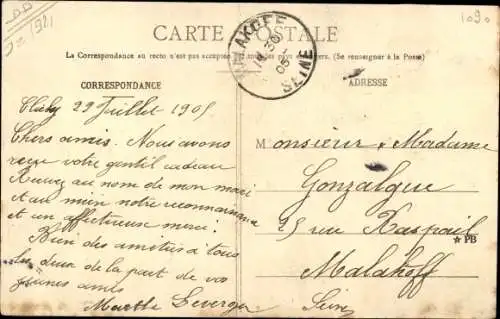 CARTE POSTALE
La Correspondance au recto n'est pas acceptée par tous les pays étrangers. (Se renseigner à la Poste)
CORRESPONDANCE
ADRESSE
MALAKOFF
30
05
SEINE
1090
Clichy 29 Juillet 1905
Chers amis. Nous avons
reçu votre gentil cadeau
Recevez au nom de mon mari
et au mien notre reconnaissance
et un affectueux merci.
Bien des amitiés à tous
les deux de la part de vos
jeunes amis
Marthe
Monsieur & Madame
Gonzalgue
25 rue Raspail
PB
Malakoff
Seine